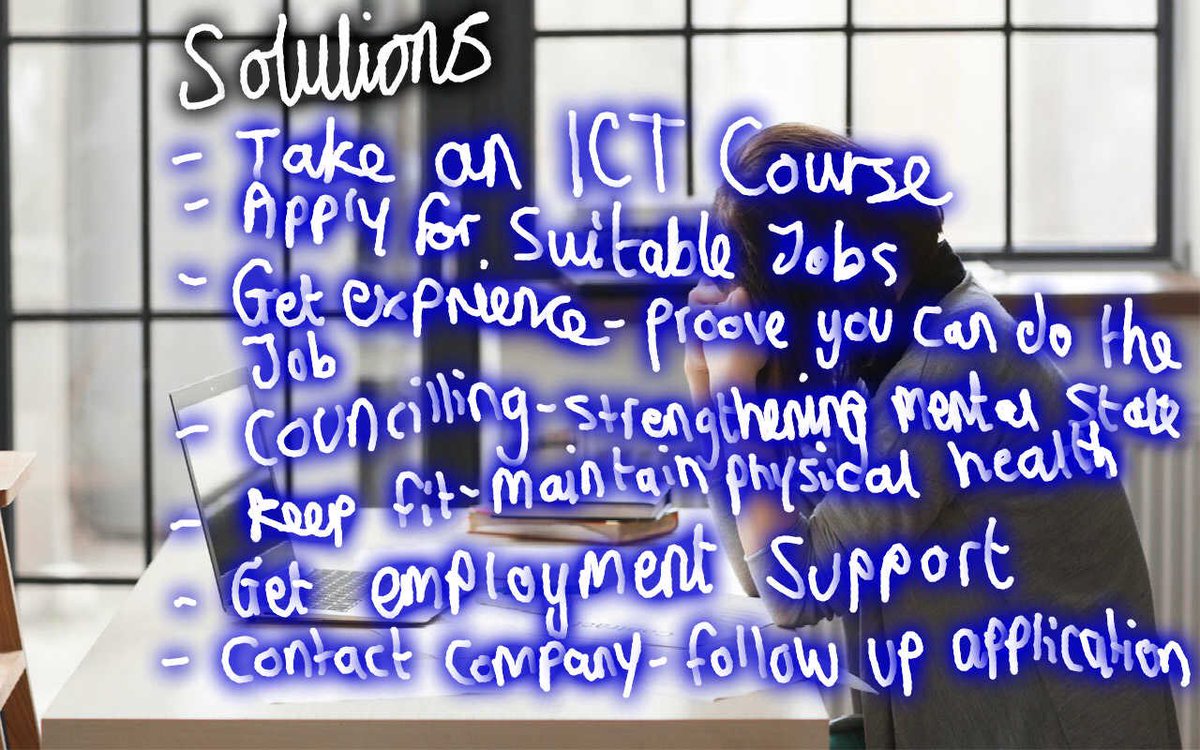 Solutions
- Take an ICT Course
- Apply for Suitable Jobs
- Get exprience - proove you can do the
Job
- Councilling - strengthening mental State
- Keep fit - maintain physical health
- Get employment Support
- Contact company - follow up application